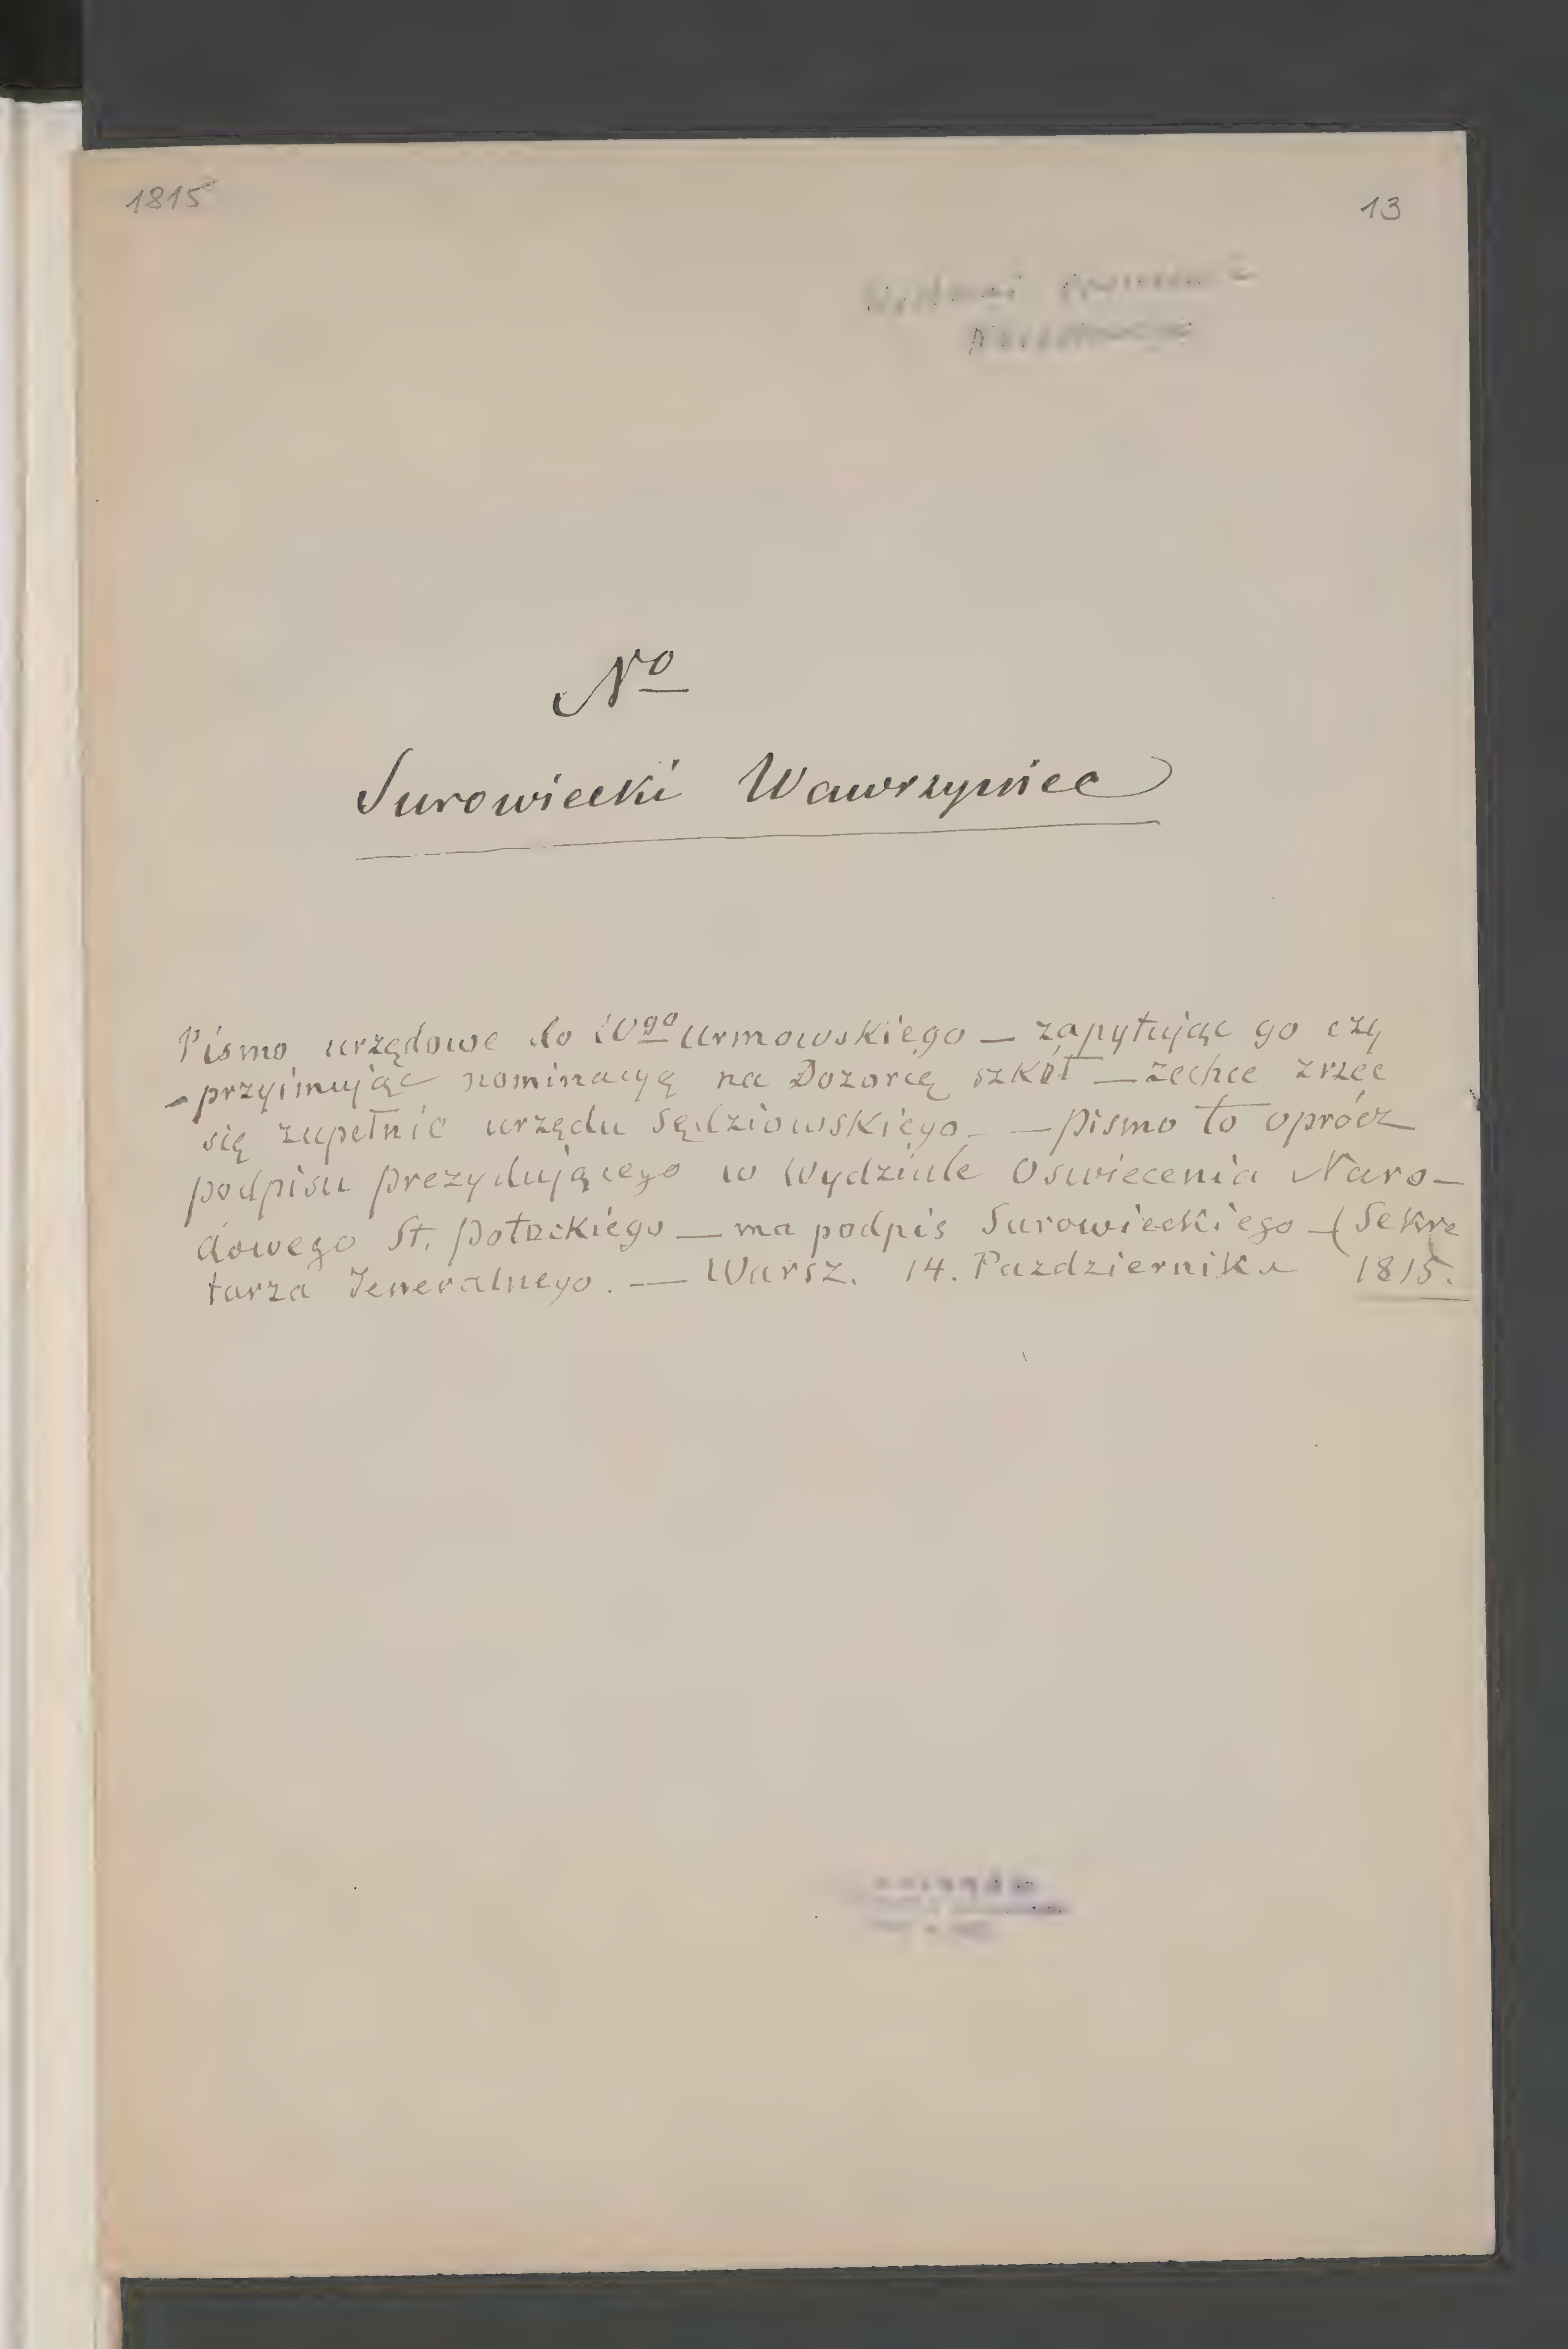 1815
13
Nº
Surowiecki Wawrzyniec
Pismo urzędowe do Wgo Urmowskiego — zapytując go czy
- przyimując nominacyę na Dozorcę szkół — zechce zrzec
się zupełnie urzędu Sędziowskiego. — pismo to oprócz
podpisu prezydującego w Wydziale Oswiecenia Naro-
dowego St. Potockiego — ma podpis Surowieckiego — (Sekre
tarza Jeneralnego. — Warsz. 14. Pazdziernika 1815.